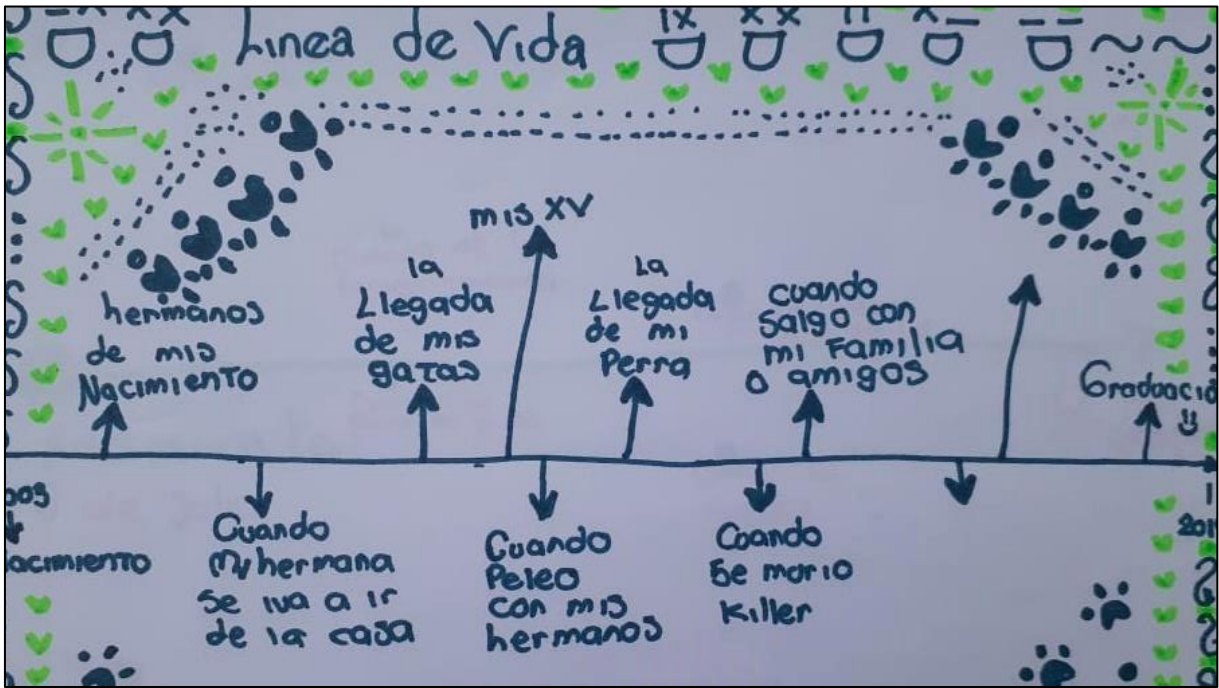 Linea de Vida
mis XV
hermanos
de mis
Nacimiento
la
Llegada
de mis
gatas
La
Llegada
de mi
Perra
cuando
Salgo con
mi Familia
o amigos
Graduació
acimiento
Cuando
My hermana
Se iva a ir
de la casa
Cuando
Peleo
con mis
hermanos
Cuando
Se morio
Killer
201